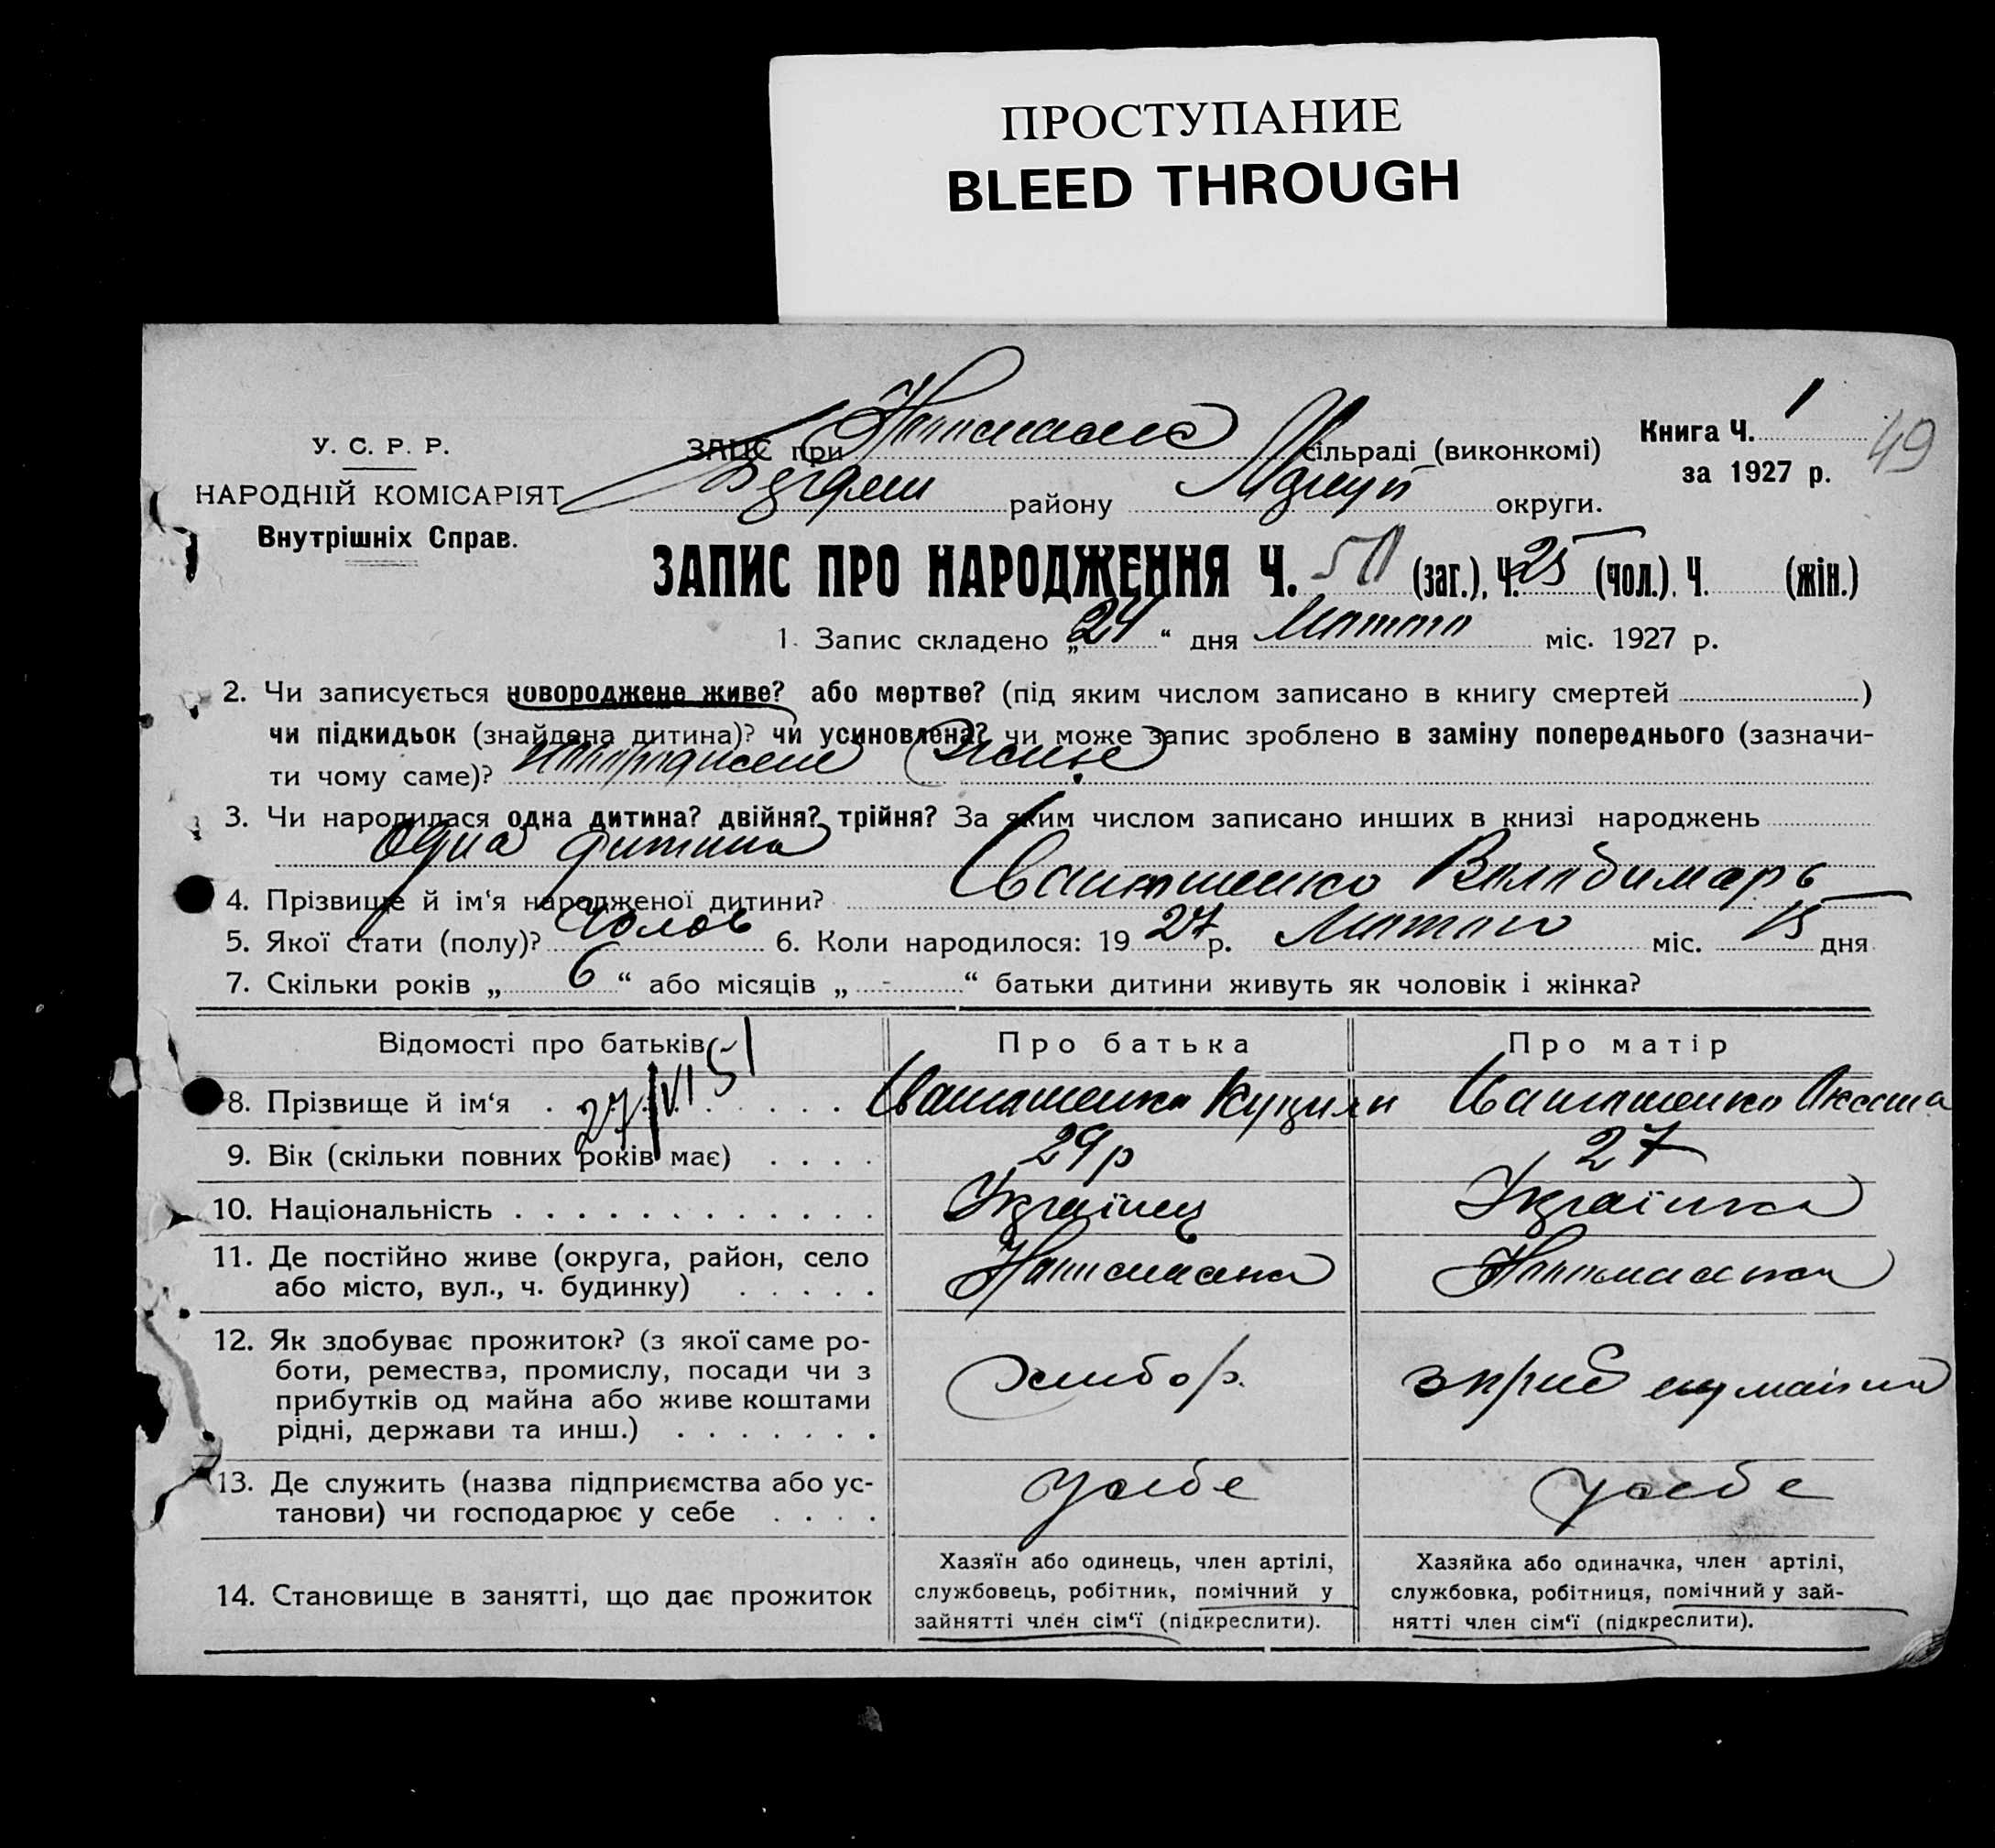 ПРОСТУПАНИЕ
BLEED THROUGH
У. С. Р. Р.
НАРОДНІЙ КОМІСАРІЯТ
Внутрішніх Справ.
ЗАЦС при сільраді (виконкомі)
району округи.
Книга Ч. 1
за 1927 р.
49
ЗАПИС ПРО НАРОДЖЕННЯ Ч. 50 (заг.), Ч. 25 (чол.), Ч. (жін.)
1. Запис складено „24“ дня Лютого міс. 1927 р.
2. Чи записується новороджене живе? або мертве? (під яким числом записано в книгу смертей )
чи підкидьок (знайдена дитина)? чи усиновлена? чи може запис зроблено в заміну попереднього (зазначи-
ти чому саме)? новороджене живе
3. Чи народилася одна дитина? двійня? трійня? За яким числом записано инших в книзі народжень
Одна дитина
4. Прізвище й ім‘я народженої дитини? Володимарь
5. Якої стати (полу)? Чолов 6. Коли народилося: 1927 р. Лютого міс. 15 дня
7. Скільки років „ 6 “ або місяців „ - “ батьки дитини живуть як чоловік і жінка?
Відомості про батьків Про батька Про матір
27/VI 51
8. Прізвище й ім‘я
9. Вік (скільки повних років має) 29р 27
10. Національність Українец Українка
11. Де постійно живе (округа, район, село
або місто, вул., ч. будинку)
12. Як здобуває прожиток? (з якої саме ро-
боти, ремества, промислу, посади чи з
прибутків од майна або живе коштами
рідні, держави та инш.) Хлибор.
13. Де служить (назва підприємства або ус-
танови) чи господарює у себе у себе у себе
14. Становище в занятті, що дає прожиток
Хазяїн або одинець, член артілі,
службовець, робітник, помічний у
зайнятті член сім‘ї (підкреслити).
Хазяйка або одиначка, член артілі,
службовка, робітниця, помічний у зай-
нятті член сім‘ї (підкреслити).